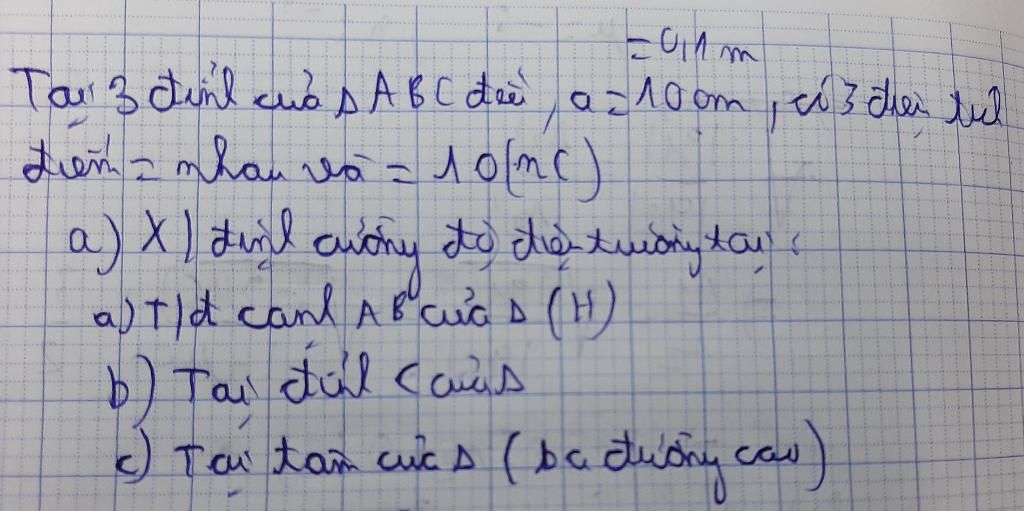 = 0,1 m
Tại 3 đỉnh của Δ ABC đều, a = 10 cm, có 3 điện tích
điểm = nhau và = 10 (nC)
a) X/ định cường độ điện trường tại:
a) T/đ cạnh AB của Δ (H)
b) Tại đỉnh C của Δ
c) Tại tâm của Δ (ba đường cao)